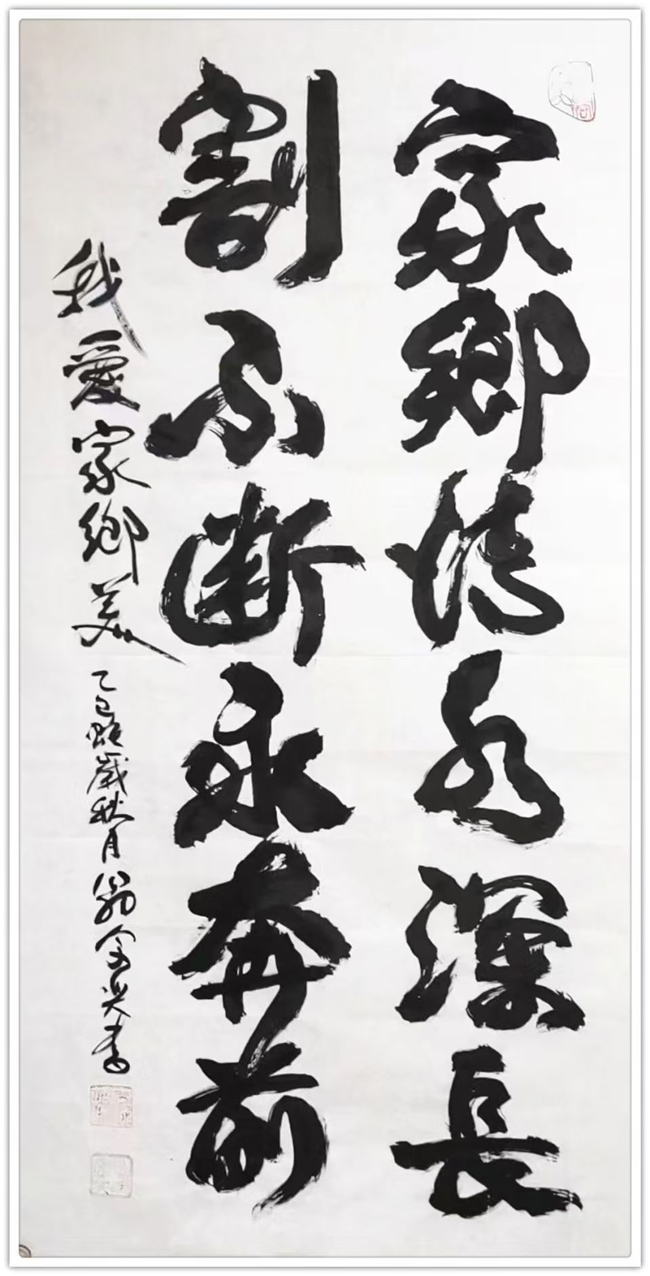 家鄉情水深長
割不断永奔前
我愛家鄉美 乙巳蛇歲秋月翁書